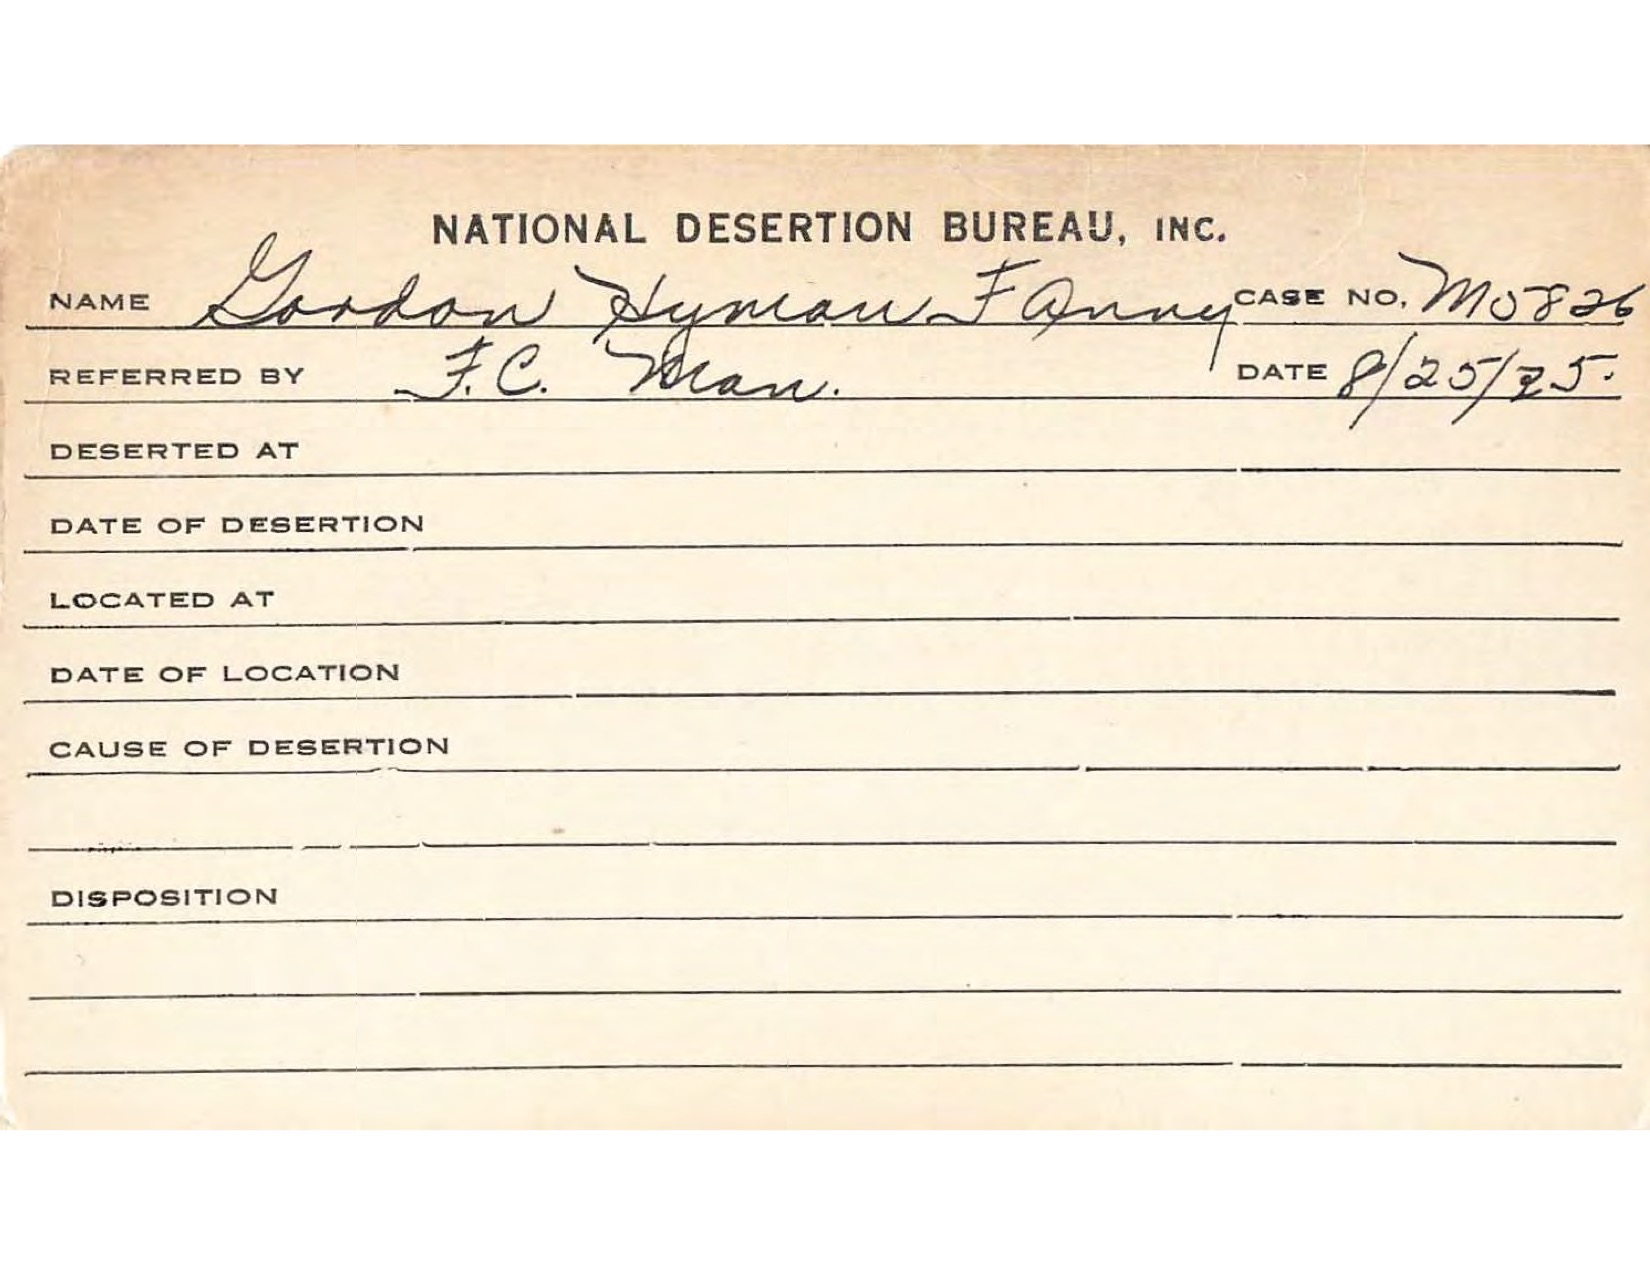 NATIONAL DESERTION BUREAU, INC.
NAME Gordon Hyman Fanny CASE NO. M5826
REFERRED BY F.C. Man. DATE 8/25/25.
DESERTED AT
DATE OF DESERTION
LOCATED AT
DATE OF LOCATION
CAUSE OF DESERTION
DISPOSITION